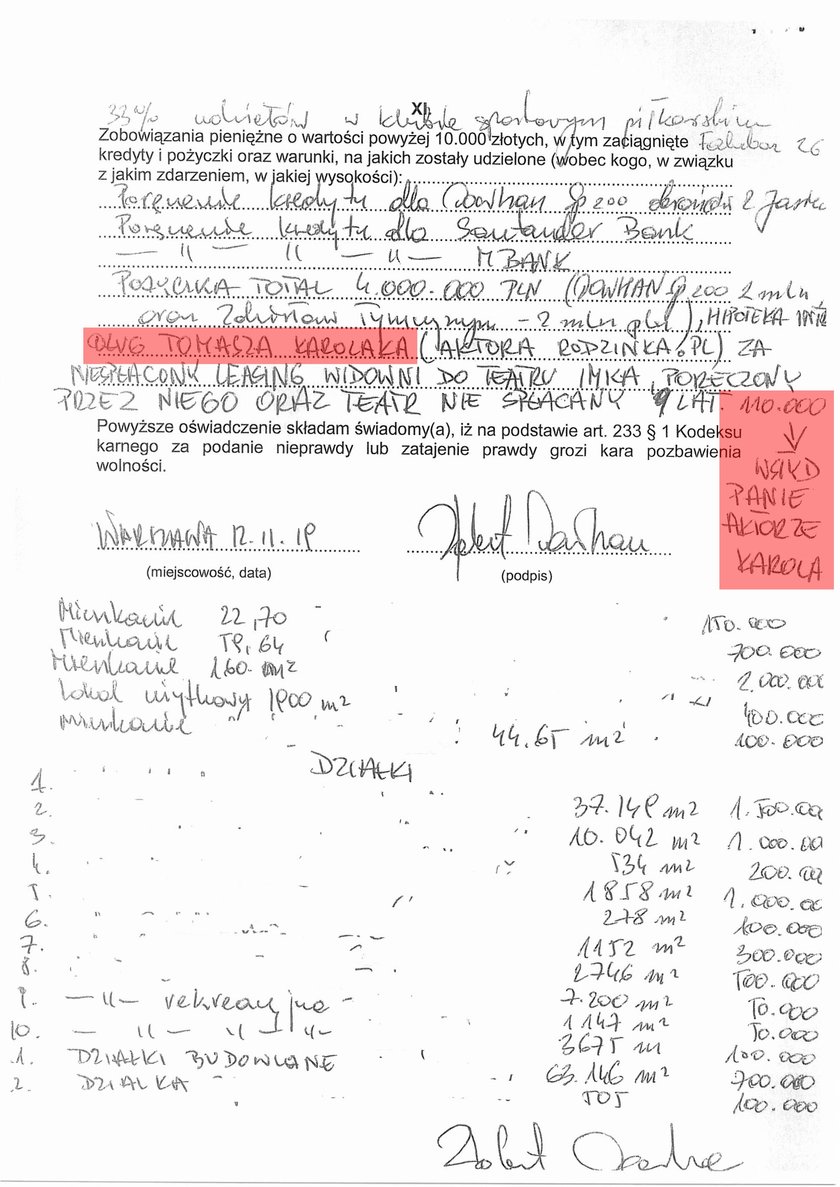 XI.
33% udziałów w klubie sportowym piłkarskim
Zobowiązania pieniężne o wartości powyżej 10.000 złotych, w tym zaciągnięte
kredyty i pożyczki oraz warunki, na jakich zostały udzielone (wobec kogo, w związku
z jakim zdarzeniem, w jakiej wysokości):
Poręczenie kredytu dla Dowhan Sp zoo
Poręczenie kredytu dla Santander Bank
— " — " — " — MBANK
POŻYCZKA TOTAL 4.000.000 PLN (DOWHAN Sp zoo 2 mln,
oraz Zdzisław Tymczyszyn - 2 mln pln), HIPOTEKA
DŁUG TOMASZA KAROLAKA (AKTORA RODZINKA.PL) ZA
NIESPŁACONY LEASING WIDOWNI DO TEATRU IMKA, PORĘCZONY
PRZEZ NIEGO ORAZ TEATR NIE SPŁACANY 9 LAT. 110.000
↓
WSTYD
PANIE
AKTORZE
KAROLA
Powyższe oświadczenie składam świadomy(a), iż na podstawie art. 233 § 1 Kodeksu
karnego za podanie nieprawdy lub zatajenie prawdy grozi kara pozbawienia
wolności.
WARSZAWA 12.11.19
Robert Dowhan
(miejscowość, data)
(podpis)
Mieszkanie 22,70 150.000
Mieszkanie 59,64 700.000
Mieszkanie 160. m² 2.000.000
Lokal użytkowy 1900 m² 400.000
mieszkanie 44.65 m² 100.000
DZIAŁKI
1.
2. 37.149 m² 1.500.00
3. 10.042 m² 1.000.00
4. 534 m² 200.00
5. 1858 m² 1.000.00
6. 278 m² 100.000
7. 1152 m² 300.000
8. 2746 m² 500.000
9. —"— rekreacyjna 7.200 m² 50.000
10. — " — " — 1147 m² 50.000
1. DZIAŁKI BUDOWLANE 3675 m 100.000
2. DZIAŁKA 63.146 m² 700.000
505 100.000
Robert Dowhan